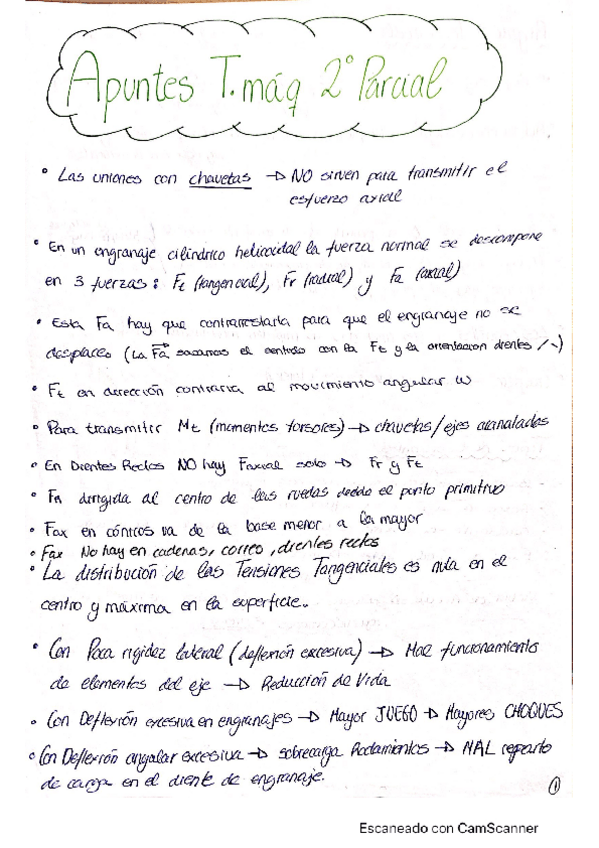 Apuntes T.máq 2º Parcial
• Las uniones con chavetas → NO sirven para transmitir el
esfuerzo axial
• En un engranaje cilindrico helicoidal la fuerza normal se descompone
en 3 fuerzas: Ft (tangencial), Fr (radial) y Fa (axial)
• Esta Fa hay que contrarrestarla para que el engranaje no se
desplace (La Fa sacamos el sentido con la Ft y la orientacion dientes / \)
• Ft en dirección contraria al movimiento angular ω
• Para transmitir Mt (momentos torsores) → chavetas/ejes acanalados
• En Dientes Rectos NO hay Faxial solo → Fr y Ft
• dirigida al centro de las ruedas desde el punto primitivo
• Fax en cónicos va de la base menor a la mayor
• Fax No hay en cadenas, correa, dientes rectos
• La distribución de las Tensiones Tangenciales es nula en el
centro y máxima en la superficie.
• Con Poca rigidez lateral (deflexión excesiva) → Mal funcionamiento
de elementos del eje → Reducción de Vida
• Con Deflexión excesiva en engranajes → Mayor JUEGO → Mayores CHOQUES
• Con Deflexión angular excesiva → sobrecarga Rodamientos → MAL reparto
de carga en el diente de engranaje.
1
Escaneado con CamScanner